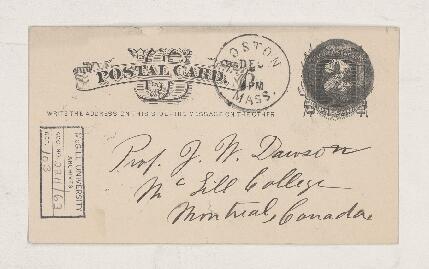 BOSTON
DEC
PM
MASS.
POSTAL CARD.
WRITE THE ADDRESS ON THIS SIDE - THE MESSAGE ON THE OTHER
Prof. J. W. Dawson
McGill College
Montreal, Canada
McGILL UNIVERSITY
ARCHIVES
ACC. NO.
REF.